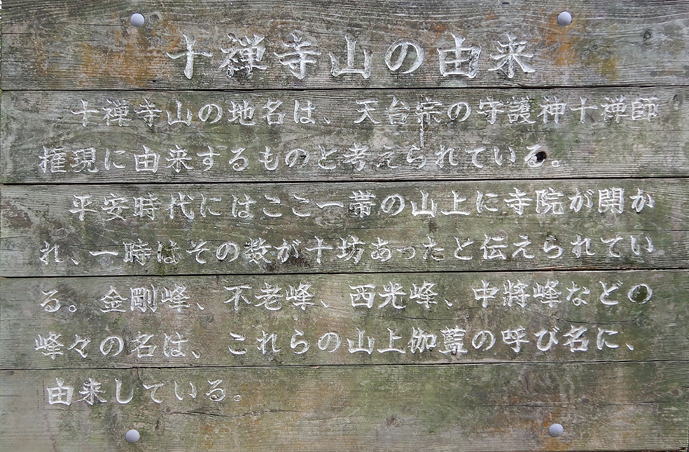 十禅寺山の由来
十禅寺山の地名は、天台宗の守護神十禅師
権現に由来するものと考えられている。
平安時代にはここ一帯の山上に寺院が開か
れ、一時はその数が十坊あったと伝えられてい
る。金剛峰、不老峰、西光峰、中将峰などの
峰々の名は、これらの山上伽藍の呼び名に、
由来している。